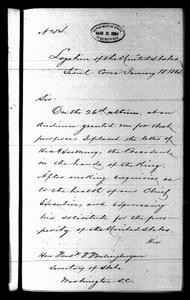 No. 54.
MAR 31 1884
Legation of the United States
Seoul Corea January 18 1884
Sir
On the 26th ultimo, at an
Audience granted me for that
purpose I placed the letter of
His Excellency, the President
in the hands of the King.
After making enquiries as
to the health of our Chief
Executive, and expressing
his solicitude for the pros-
perity of the United States.
His
Hon. Fred'k T. Frelinghuysen
Secretary of State
Washington D.C.